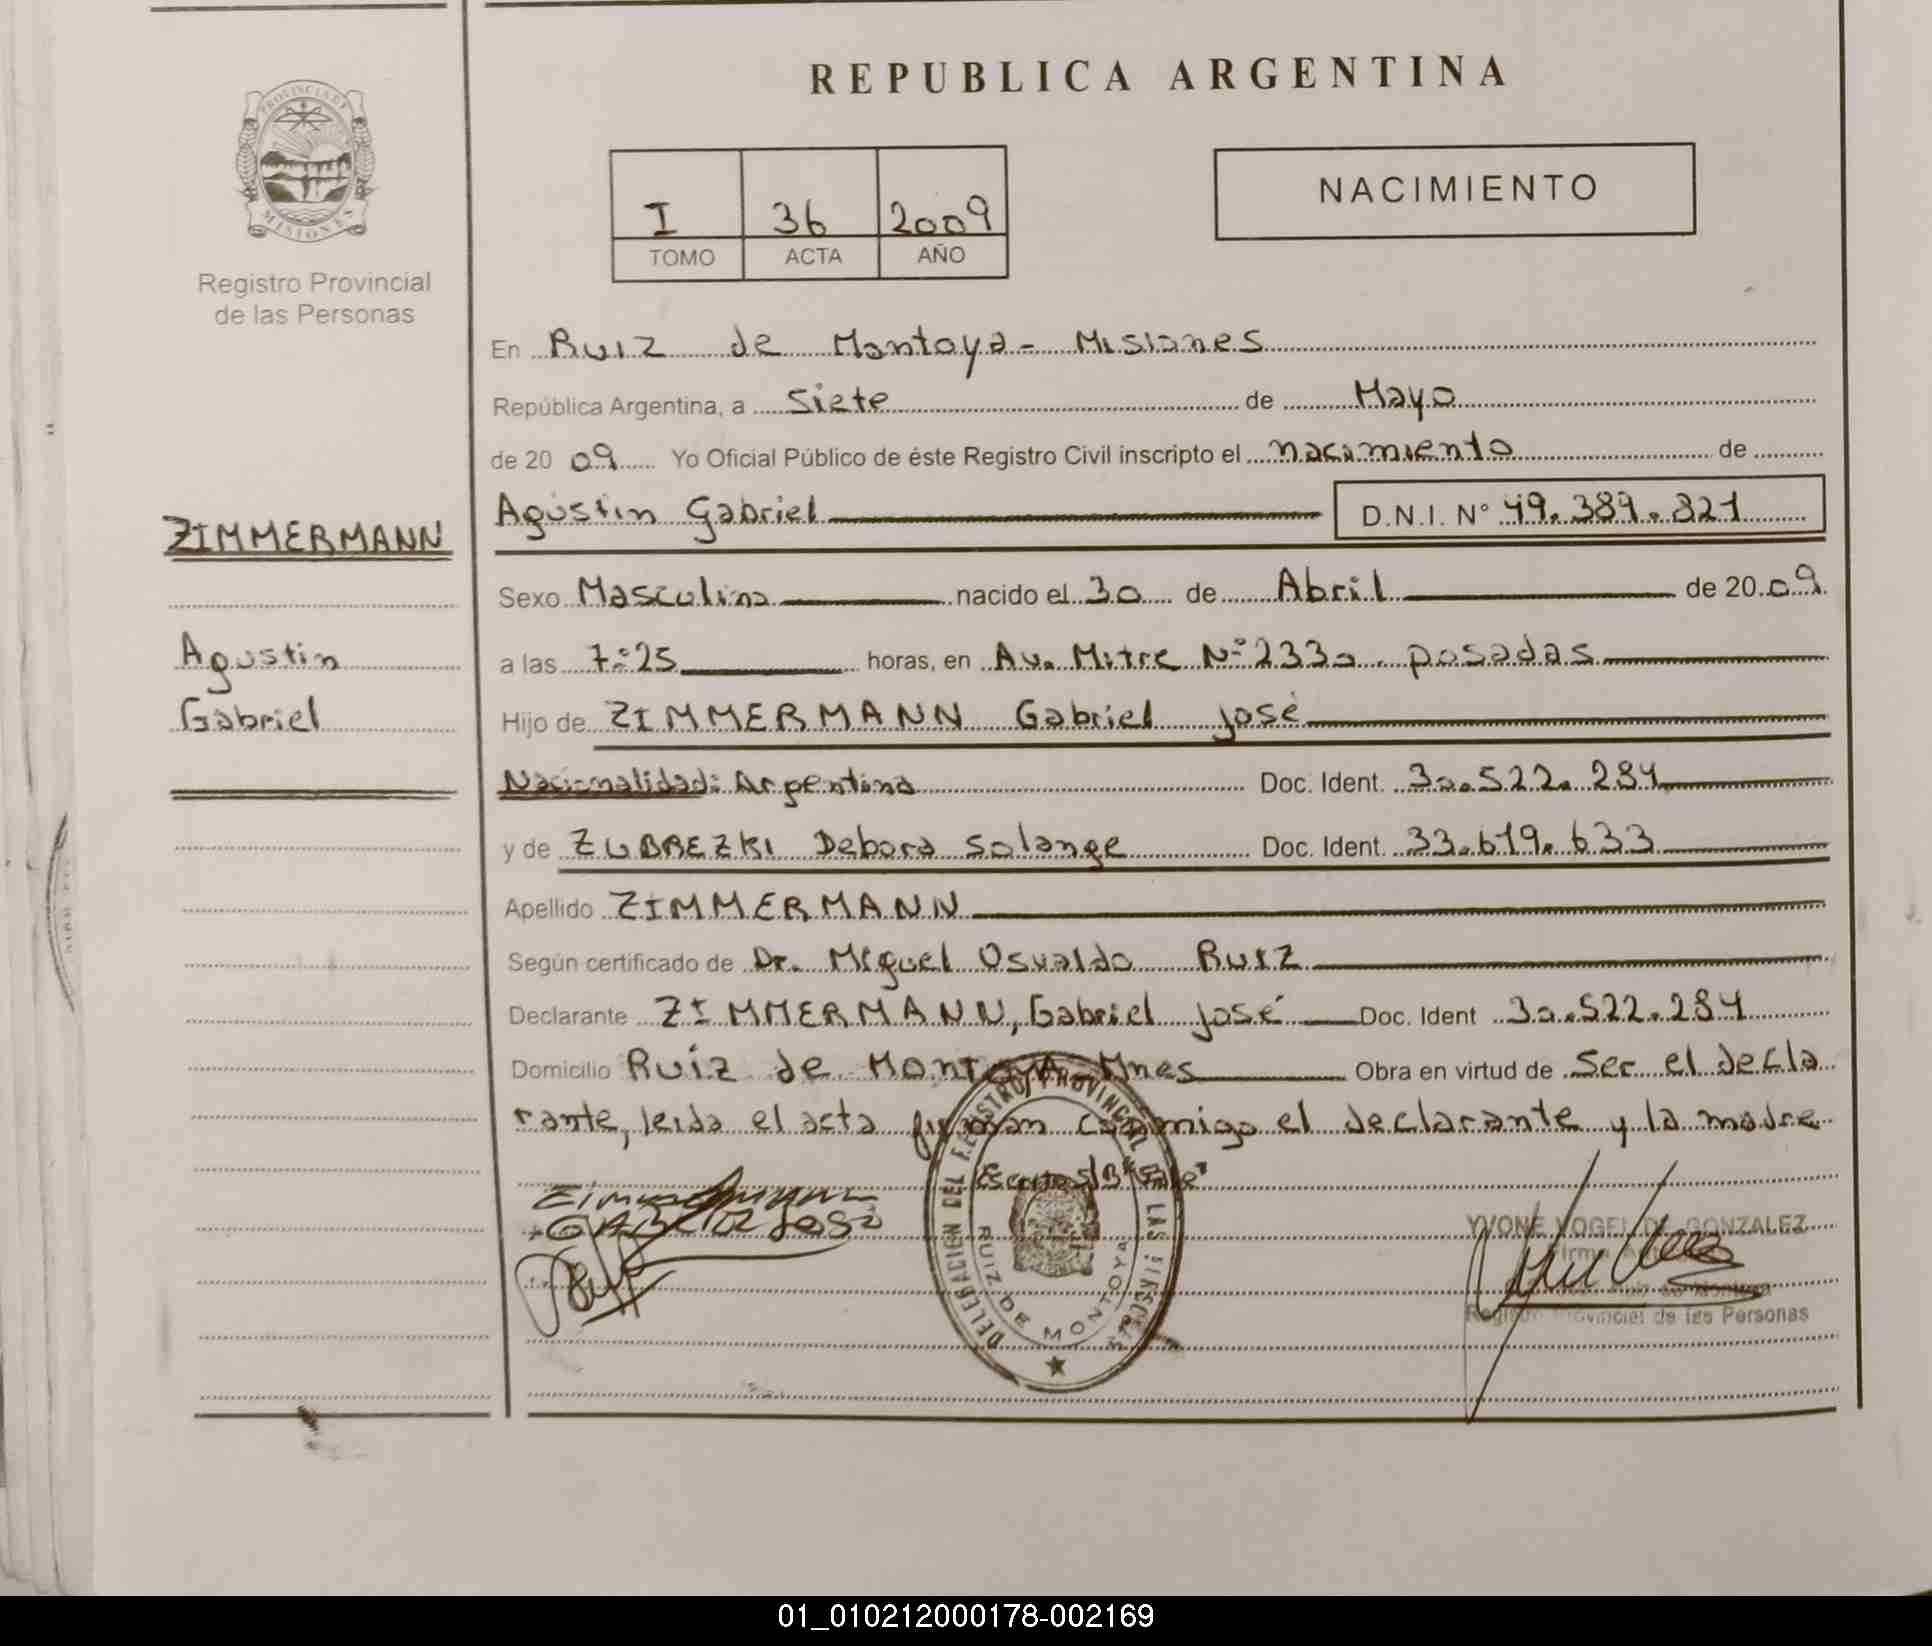 REPUBLICA ARGENTINA
PROVINCIA DE
MISIONES
Registro Provincial
de las Personas
I 36 2009
TOMO ACTA AÑO
NACIMIENTO
En Ruiz de Montoya - Misiones
República Argentina, a siete de Mayo
de 2009 Yo Oficial Público de éste Registro Civil inscripto el nacimiento de
Agustin Gabriel D.N.I. N° 49.389.821
ZIMMERMANN
Agustin
Gabriel
Sexo Masculino nacido el 30 de Abril de 2009
a las 7:25 horas, en Av. Mitre N° 2330 posadas
Hijo de ZIMMERMANN Gabriel José
Nacionalidad: Argentina Doc. Ident. 30.522.284
y de ZUBREZKI Debora Solange Doc. Ident. 33.619.633
Apellido ZIMMERMANN
Según certificado de Dr. Miguel Osvaldo RUIZ
Declarante ZIMMERMANN, Gabriel José Doc. Ident 30.522.284
Domicilio Ruiz de Montoya Mnes Obra en virtud de ser el decla
rante, leida el acta firman conmigo el declarante y la madre
DELEGACION DEL REGISTRO PROVINCIAL LAS PERSONAS
RUIZ DE MONTOYA
YVONE VOGEL DE GONZALEZ
Registro Provincial de las Personas
01_010212000178-002169